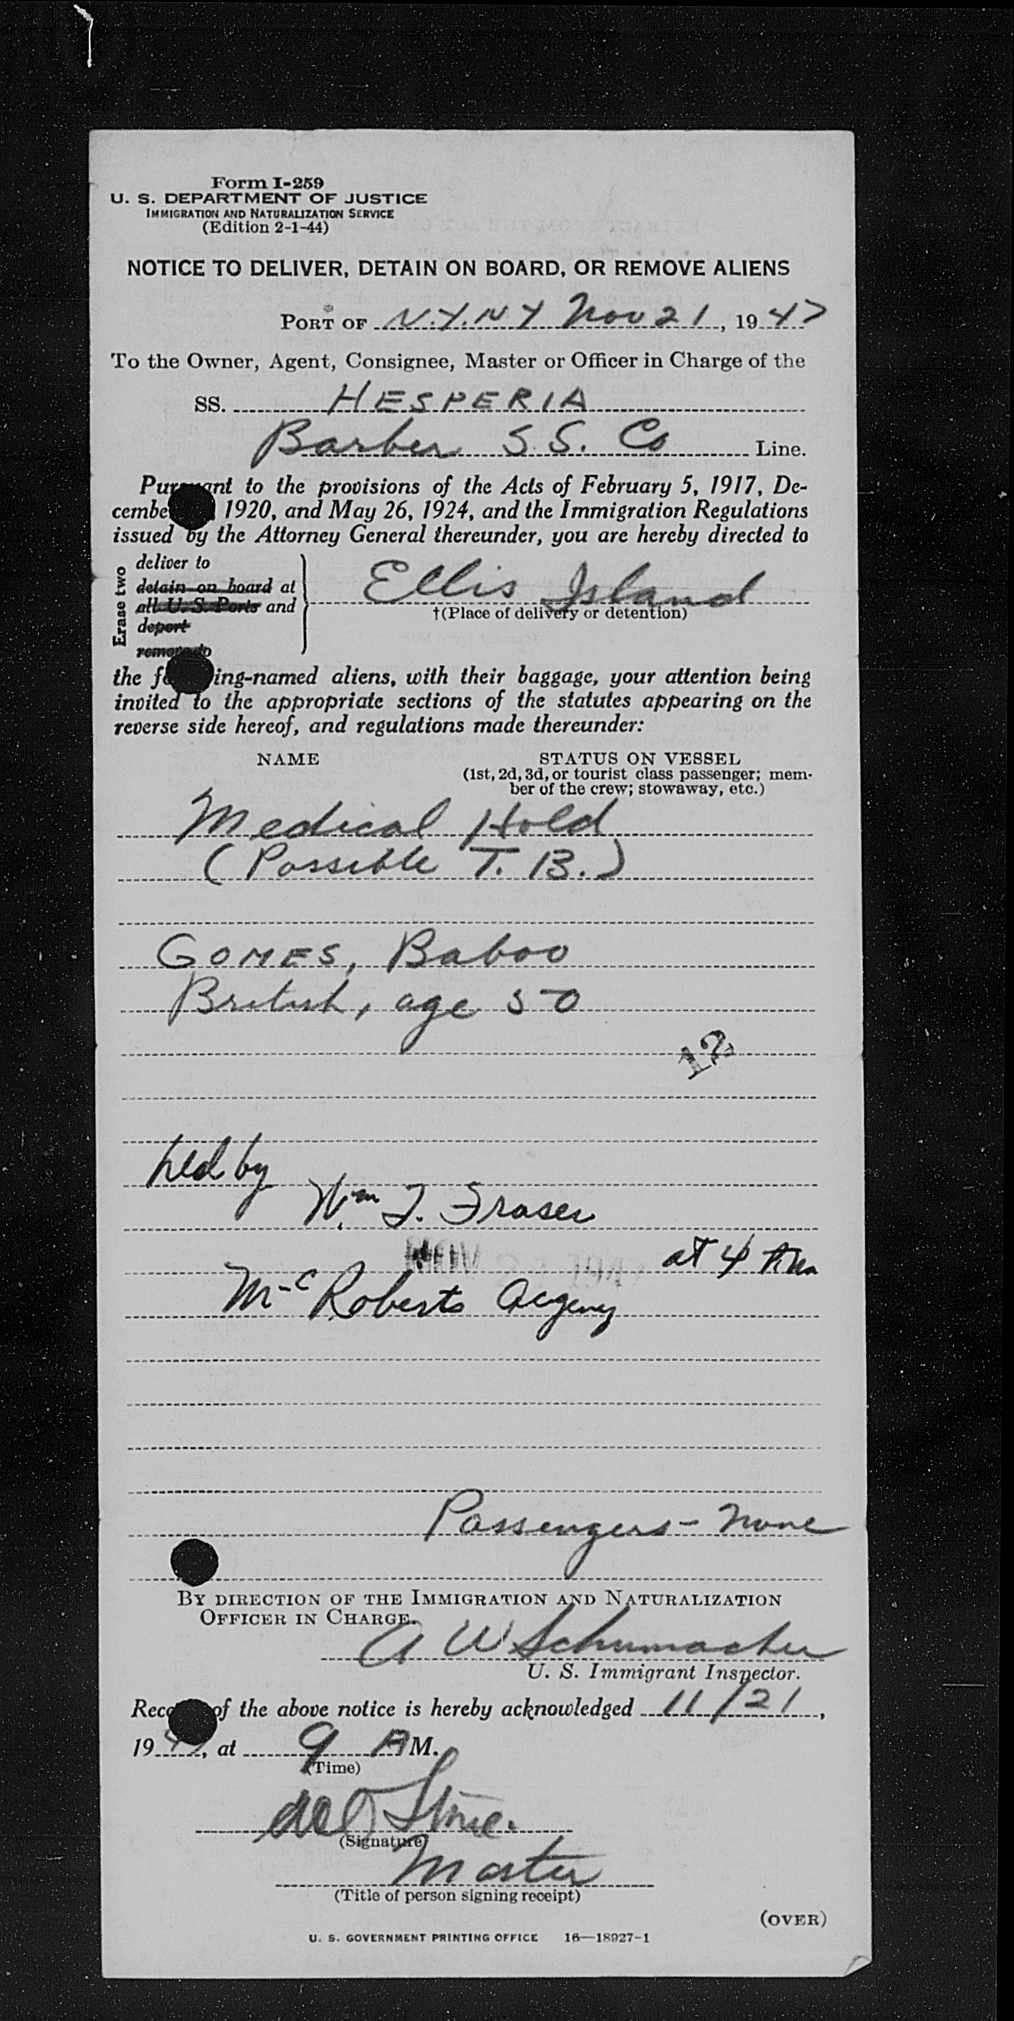 Form I-259
U. S. DEPARTMENT OF JUSTICE
IMMIGRATION AND NATURALIZATION SERVICE
(Edition 2-1-44)
NOTICE TO DELIVER, DETAIN ON BOARD, OR REMOVE ALIENS
PORT OF N.Y.NY Nov 21, 1947
To the Owner, Agent, Consignee, Master or Officer in Charge of the
SS. HESPERIA
Barber S.S. Co Line.
Pursuant to the provisions of the Acts of February 5, 1917, De-
cembe 1920, and May 26, 1924, and the Immigration Regulations
issued by the Attorney General thereunder, you are hereby directed to
Erase two
deliver to
detain on board at
all U. S. Ports and
deport
Ellis Island
†(Place of delivery or detention)
the following-named aliens, with their baggage, your attention being
invited to the appropriate sections of the statutes appearing on the
reverse side hereof, and regulations made thereunder:
NAME STATUS ON VESSEL
(1st, 2d, 3d, or tourist class passenger; mem-
ber of the crew; stowaway, etc.)
Medical Hold
(Possible T. B.)
GOMES, Baboo
British, age 50
12
held by
Wm J. Fraser
at 4 Am
McRoberts Aegency
Passengers - None
BY DIRECTION OF THE IMMIGRATION AND NATURALIZATION
OFFICER IN CHARGE.
A W Schumacher
U. S. Immigrant Inspector.
Receipt of the above notice is hereby acknowledged 11/21,
1947, at 9 AM.
(Time)
(Signature)
Master
(Title of person signing receipt)
(OVER)
U. S. GOVERNMENT PRINTING OFFICE 16—18927-1